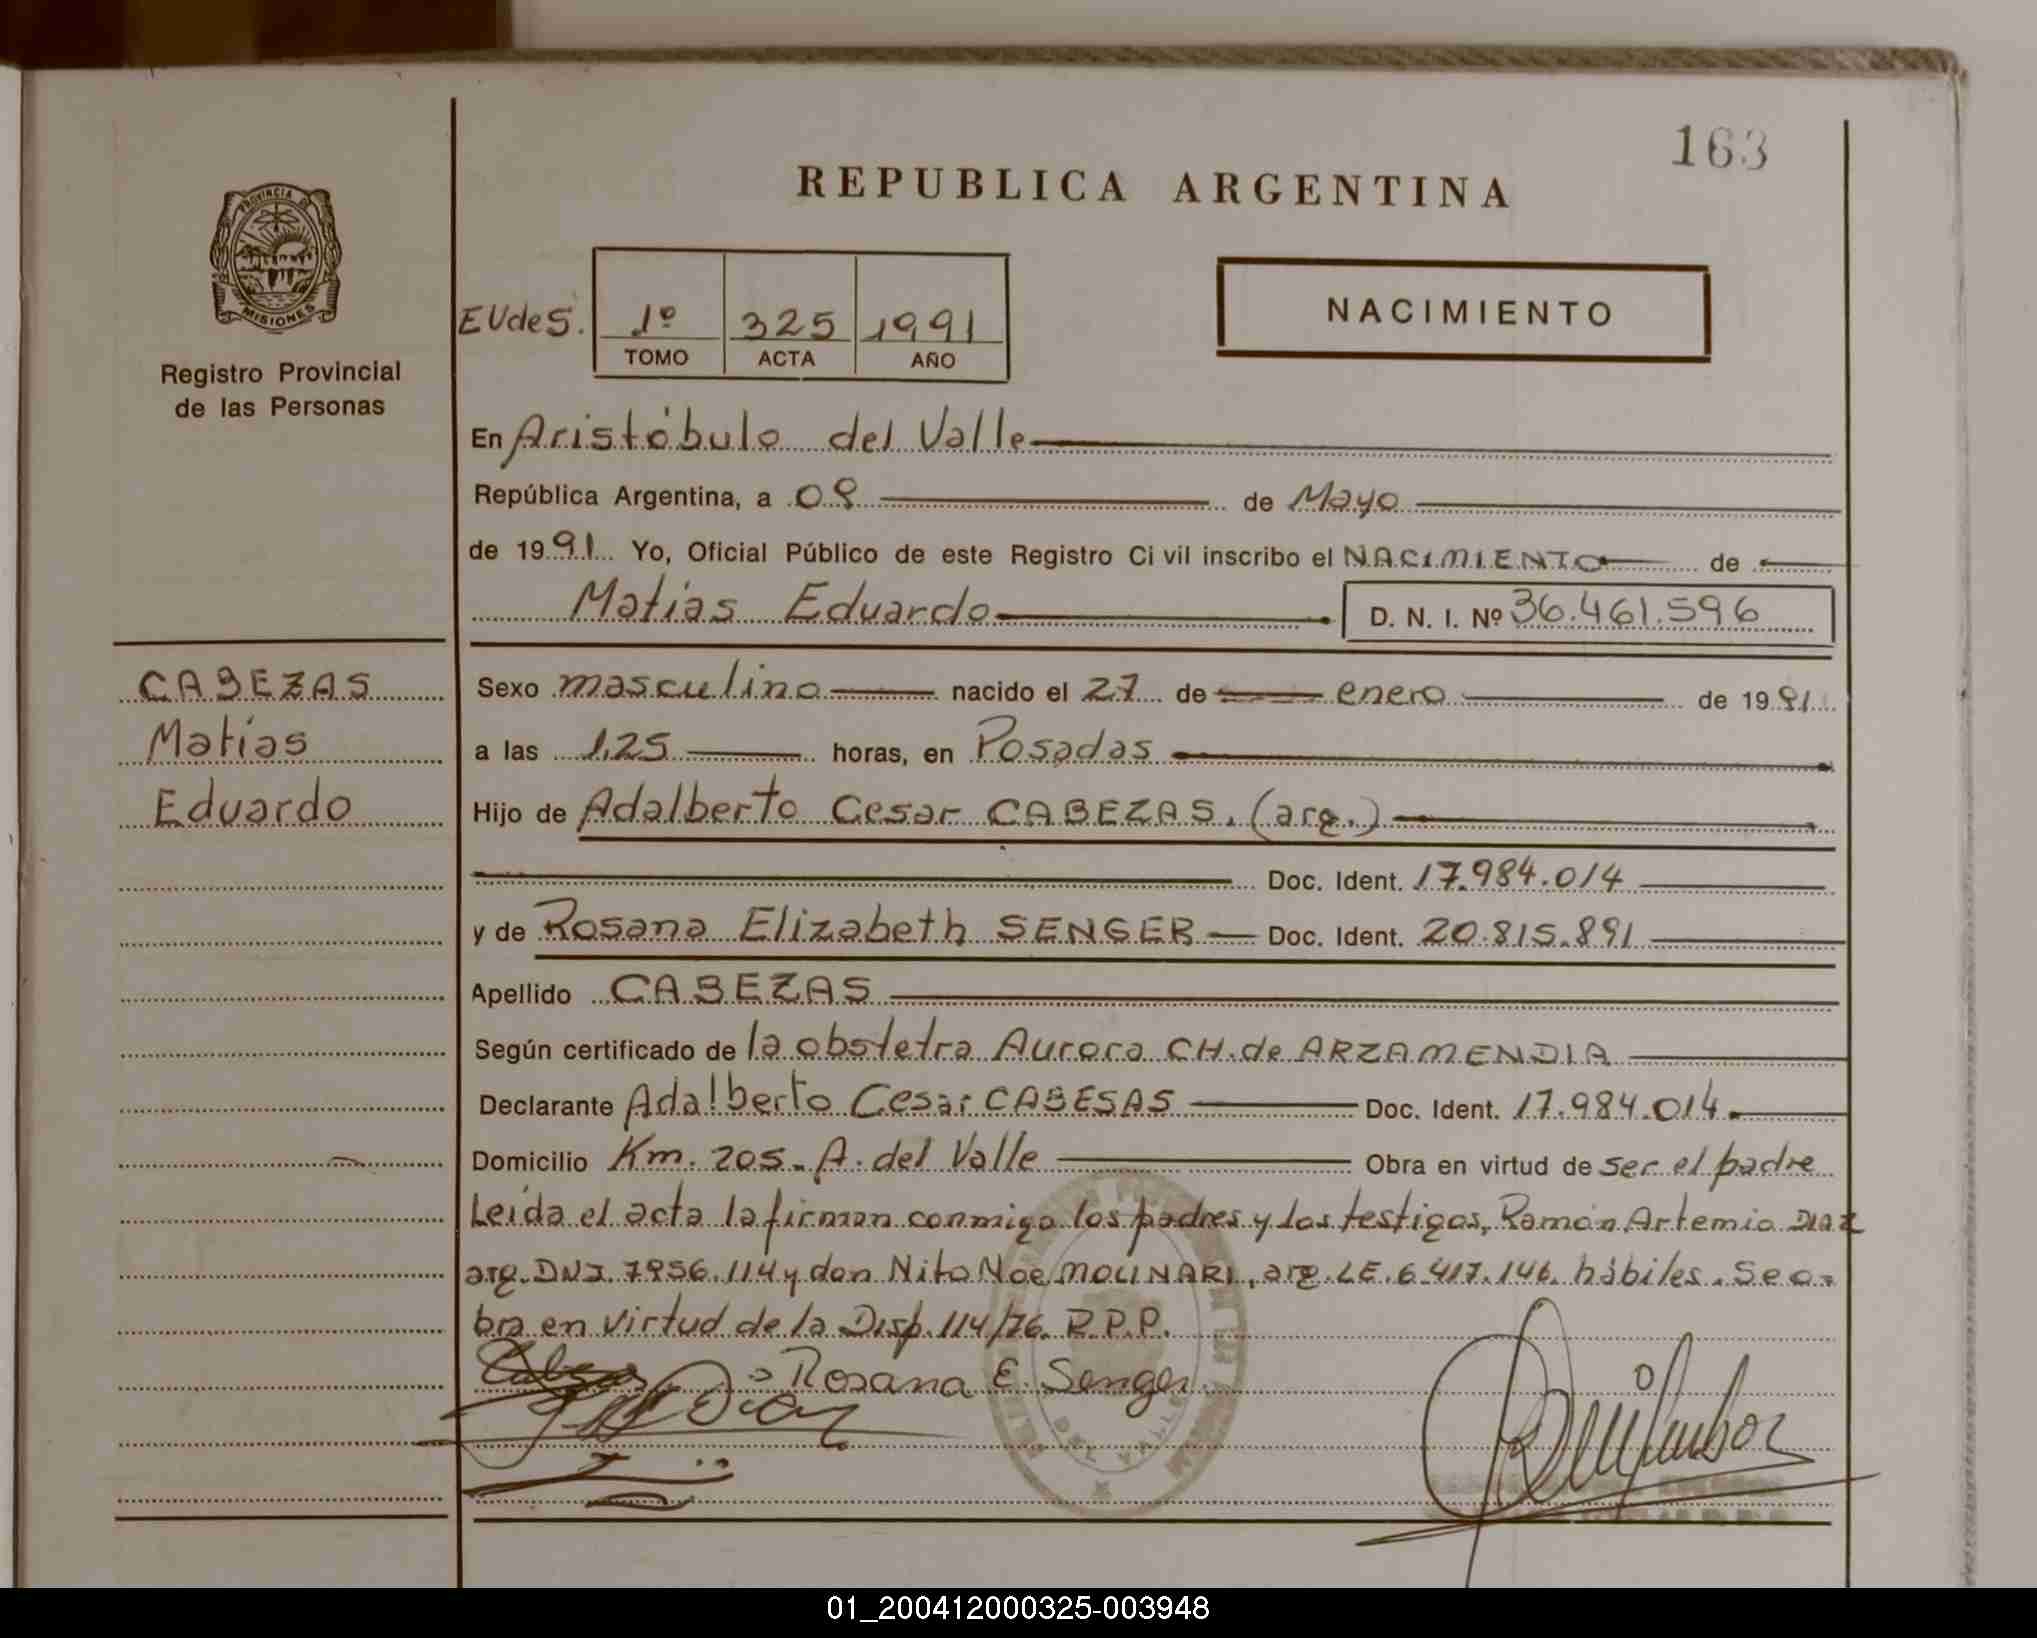 163
REPUBLICA ARGENTINA
PROVINCIA DE
MISIONES
Registro Provincial
de las Personas
EUdeS. 1º 325 1991
TOMO ACTA AÑO
NACIMIENTO
En Aristóbulo del Valle
República Argentina, a 08 de Mayo
de 1991 Yo, Oficial Público de este Registro Ci vil inscribo el NACIMIENTO de
Matías Eduardo D. N. I. Nº 36.461.596
CABEZAS
Matías
Eduardo
Sexo masculino nacido el 27 de enero de 1991
a las 1,25 horas, en Posadas
Hijo de Adalberto Cesar CABEZAS. (arg.)
Doc. Ident. 17.984.014
y de Rosana Elizabeth SENGER Doc. Ident. 20.815.891
Apellido CABEZAS
Según certificado de la obstetra Aurora CH. de ARZAMENDIA
Declarante Adalberto Cesar CABESAS Doc. Ident. 17.984.014
Domicilio Km. 205. A. del Valle Obra en virtud de ser el padre
Leída el acta la firman conmigo los padres y los testigos, Ramón Artemio DIAZ
arg. DNI. 7956.114 y don Nito Noe MOLINARI, arg. LE. 6.417.146. hábiles. Se o-
bra en virtud de la Disp. 114/76. R.P.P.
Rosana E. Senger
DEL VALLE
01_200412000325-003948